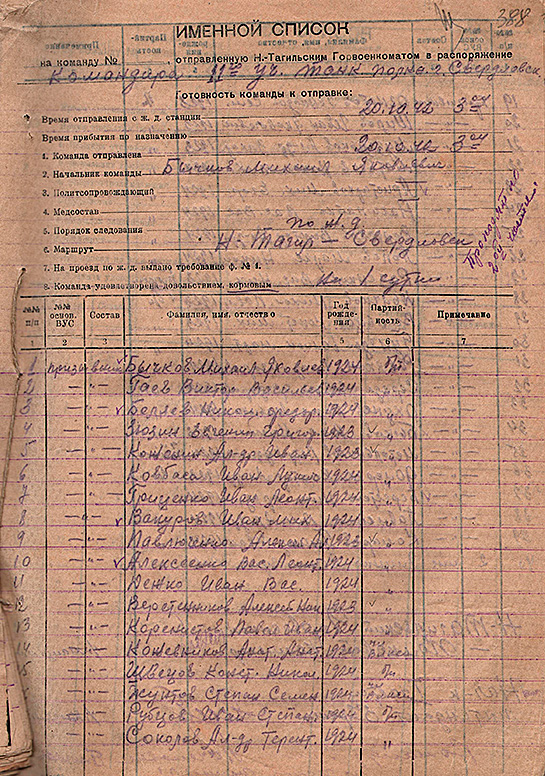 388
ИМЕННОЙ СПИСОК
на команду № , отправленную Н.-Тагильским Горвоенкоматом в распоряжение
Командира 11го уч. танк. полка г. Свердловск
Готовность команды к отправке:
Время отправления с ж. д. станции 20.10.42 3оо
Время прибытия по назначению
1. Команда отправлена 20.10.42 3оо
2. Начальник команды Бычков Михаил Яковлевич
3. Политсопровождающий
4. Медсостав
5. Порядок следования по ж.д.
6. Маршрут Н. Тагил — Свердловск
7. На проезд по ж. д. выдано требование ф. № 1.
8. Команда удовлетворена довольствием кормовым на 1 сутки
№№ п/п №№ основ. ВУС Состав Фамилия, имя, отчество Год рождения Партийность Примечание
1 2 3 4 5 6 7
1 призывной Бычков Михаил Яковлев 1924 б/п
2 -"- Гаев Виктор Васильев 1924
3 -"- Беляев Никон 1924
4 -"- Зюзин Евгений Григор. 1923
5 -"- Ал-др Иван. 1923
6 -"- Ковбаса Иван 1924
7 -"- Грищенко Иван Леонт. 1924
8 -"- Вакуров Иван Мих. 1924
9 -"- Павлюченко Алексей Ал. 1923
10 -"- Алексеенко Вас. Леонт. 1924
11 -"- Дежко Иван Вас. 1924
12 -"- Верстенников Алексей 1923
13 -"- Коренистов Павел Иван 1924
14 -"- Кожевников Анат. Анат. 1924
15 -"- Швецов Конст. Никол. 1924 б/п
-"- Жунтов Степан Семен. 1924
-"- Рубцов Иван Степан. 1924 б/п
Соколов Ал-др Терент. 1924 "